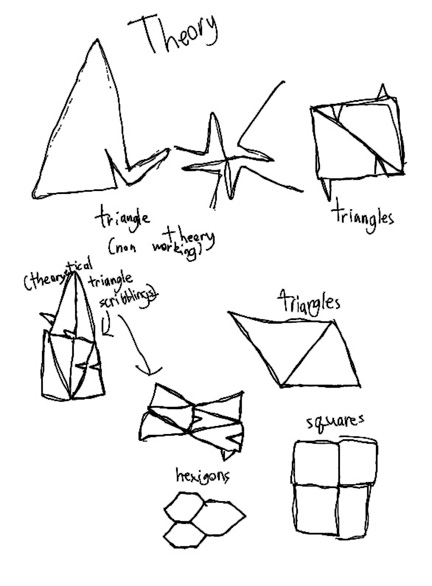 Theory
triangle
theory
(non working)
triangles
(theoretical
triangle
scribblings)
triangles
squares
hexigons